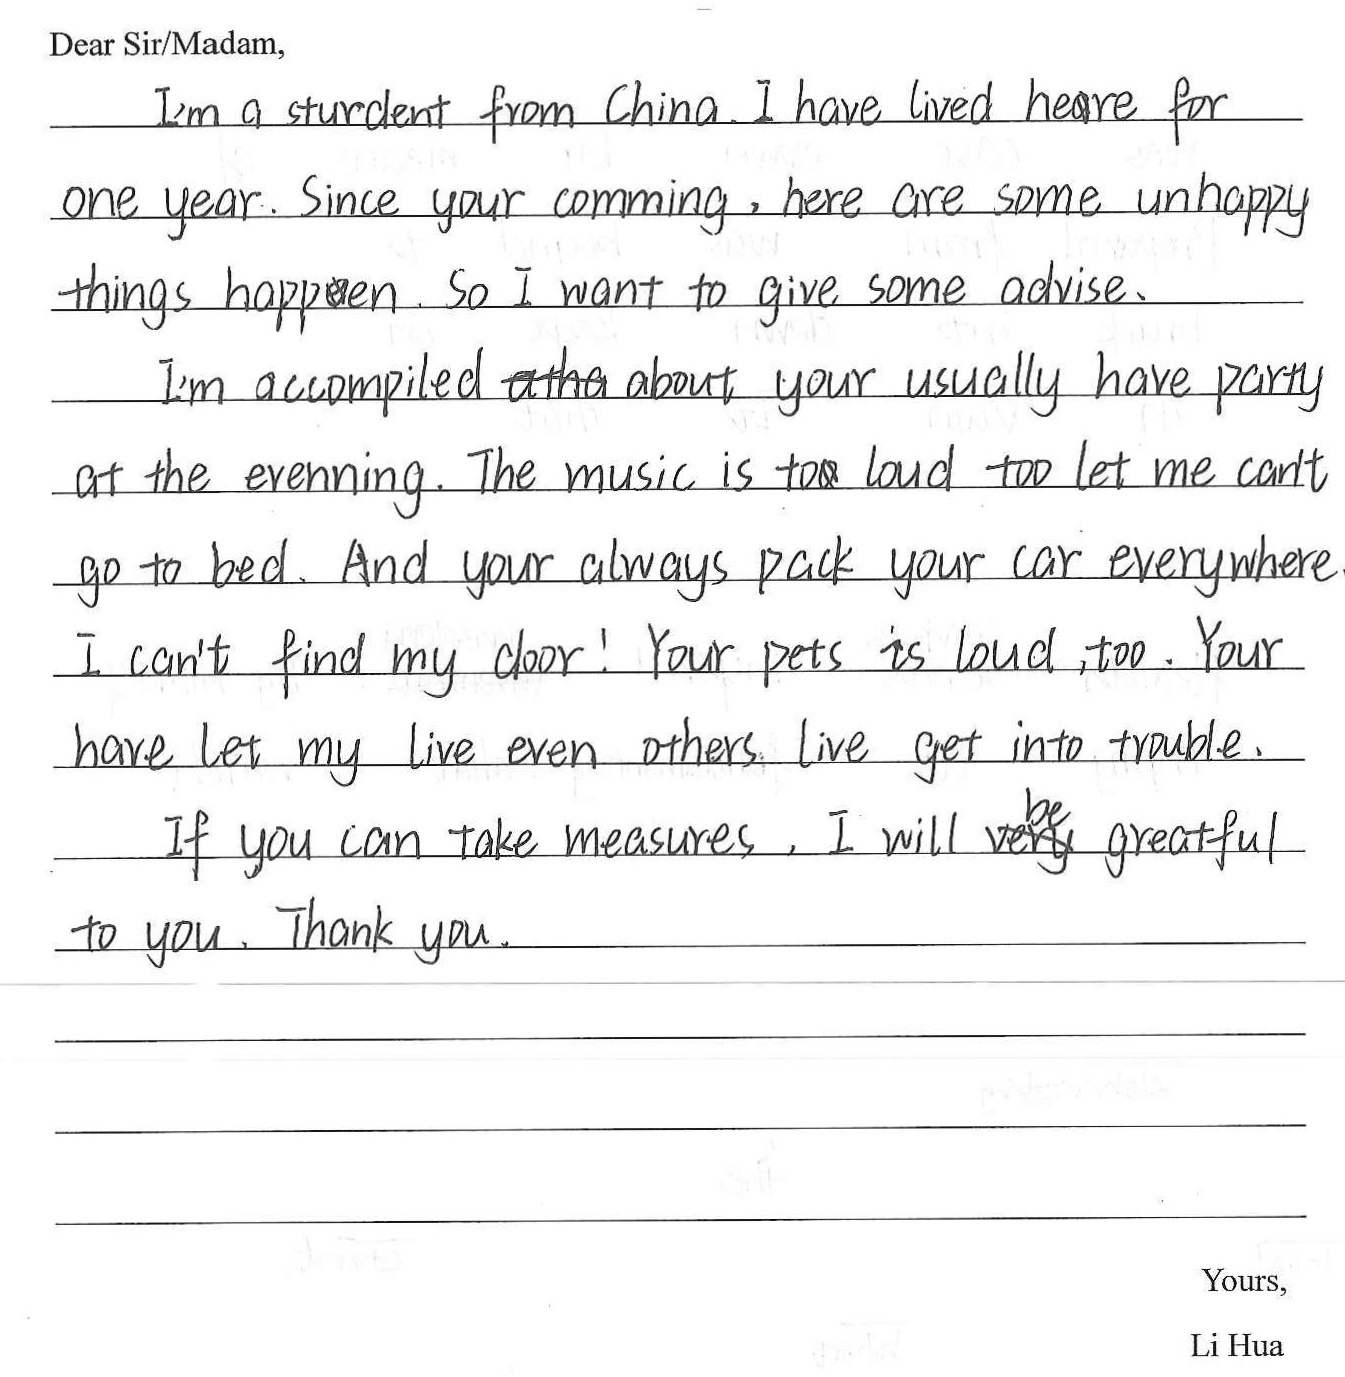 Dear Sir/Madam,
I'm a sturdent from China. I have lived heare for
one year. Since your comming, here are some unhappy
things happen. So I want to give some advise.
I'm accompiled about your usually have party
at the evenning. The music is too loud too let me can't
go to bed. And your always pack your car everywhere.
I can't find my door! Your pets is loud, too. Your
have let my live even others live get into trouble.
If you can take measures, I will be greatful
to you. Thank you.
Yours,
Li Hua